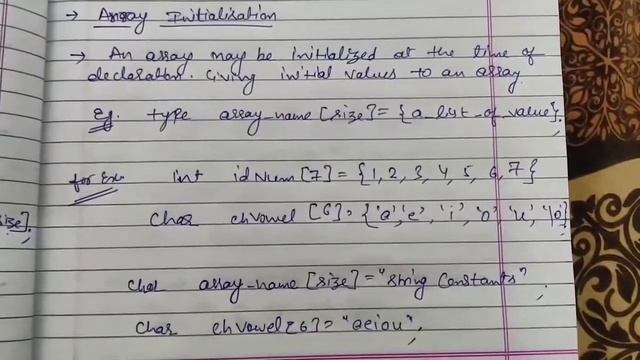 → Array Initialization
→ An array may be initialized at the time of
declaration. Giving initial values to an array.
Eg. type array_name [size] = {a_list_of_value};
for Ex. int idNum [7] = {1, 2, 3, 4, 5, 6, 7}
size];
char chVowel [6] = {'a', 'e', 'i', 'o', 'u', '\0'};
char array_name [size] = "String Constants";
char chVowel [6] = "aeiou";